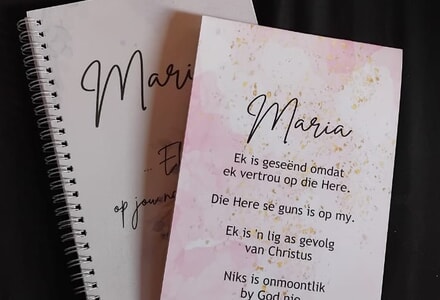 Maria
... E
op jou
Maria
Ek is geseënd omdat
ek vertrou op die Here.
Die Here se guns is op my.
Ek is 'n lig as gevolg
van Christus
Niks is onmoontlik
by God nie